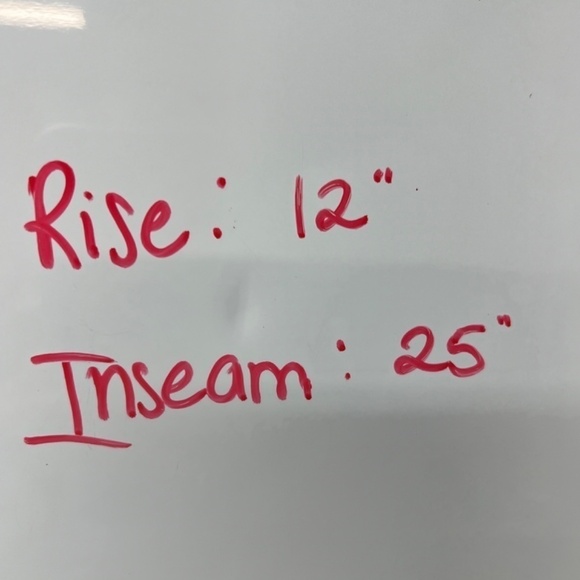 Rise: 12"
Inseam: 25"